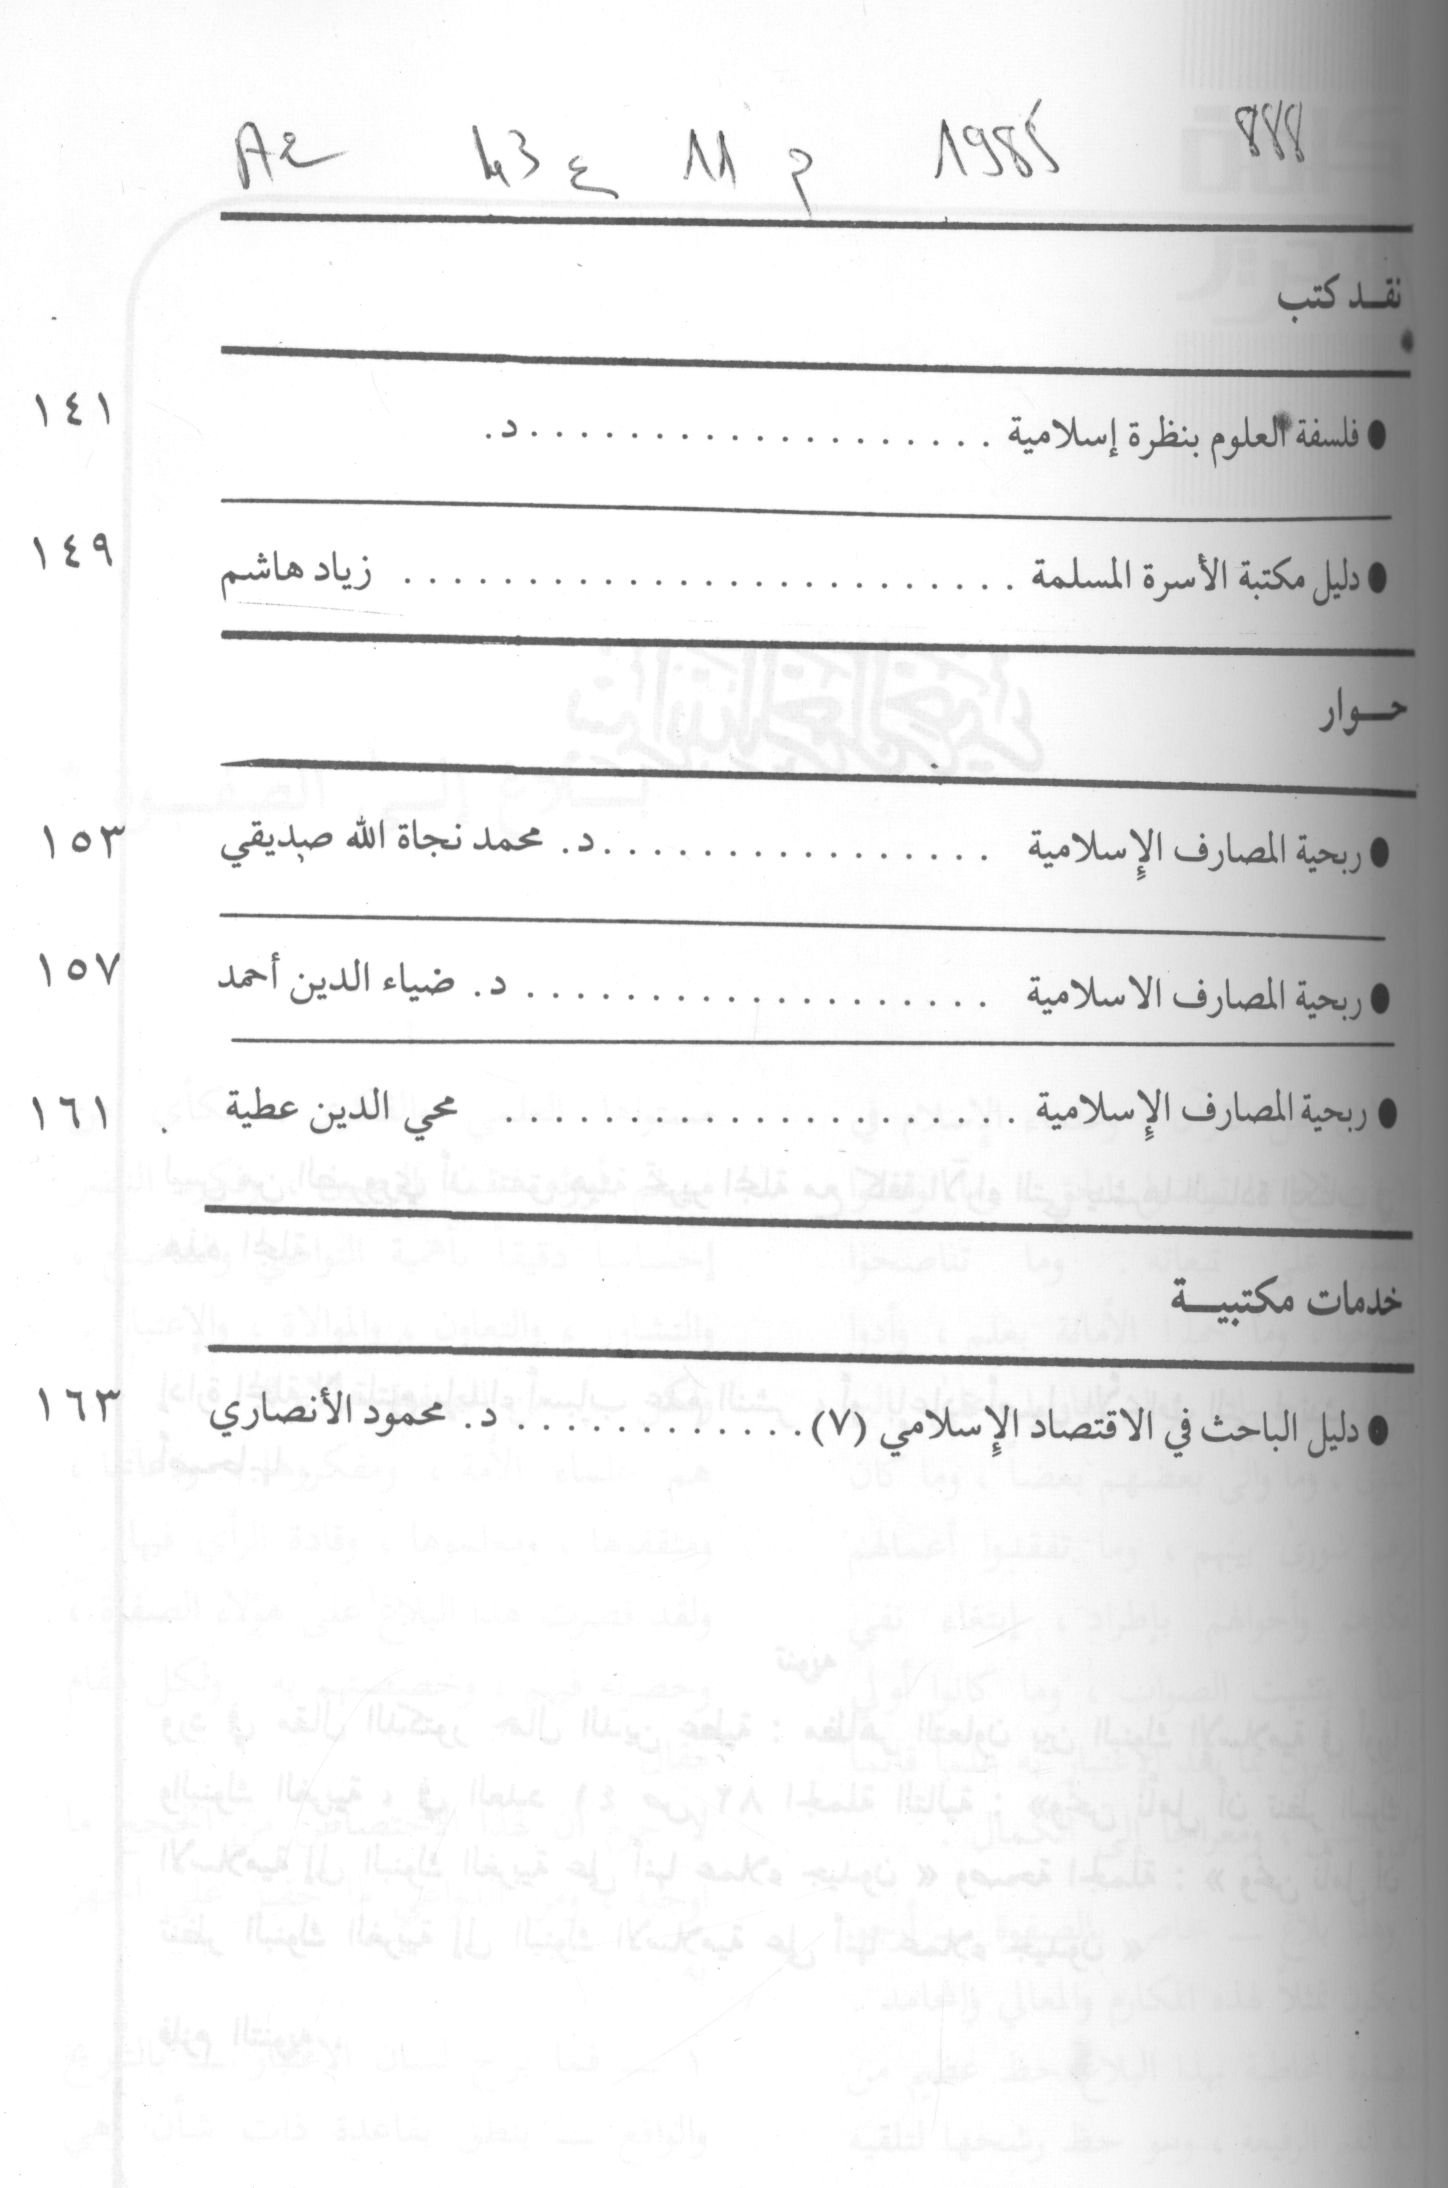 888 1985 م 11 ع 43
نقـد كتب
● فلسفة العلوم بنظرة إسلامية . . . . . . . . . . . . . . . . . . . د. ١٤١
● دليل مكتبة الأسرة المسلمة . . . . . . . . . . . . . . . . . . . . . . . . . زياد هاشم ١٤٩
حـوار
● ربحية المصارف الإسلامية . . . . . . . . . . . . . . . . د. محمد نجاة الله صديقي ١٥٣
● ربحية المصارف الاسلامية . . . . . . . . . . . . . . . . . . . د. ضياء الدين أحمد ١٥٧
● ربحية المصارف الإسلامية . . . . . . . . . . . . . . . . . . . . . محي الدين عطية ١٦١
خدمات مكتبيـة
● دليل الباحث في الاقتصاد الإسلامي (٧) . . . . . . . . . . . . د. محمود الأنصاري ١٦٣